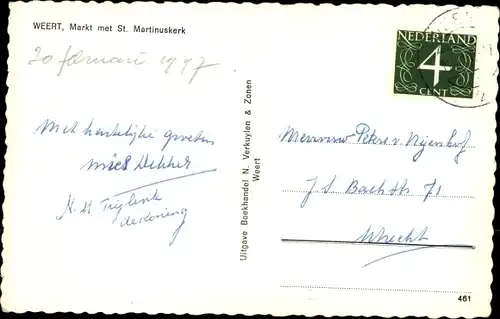 WEERT, Markt met St. Martinuskerk
20 februari 1997
Met hartelijke groeten
Mies Dekker
Uitgave Boekhandel N. Verkuylen & Zonen
Weert
NEDERLAND
4
CENT
Mevrouw Peters v. Nijenhof
J.S. Bachstr. 71
Utrecht
461